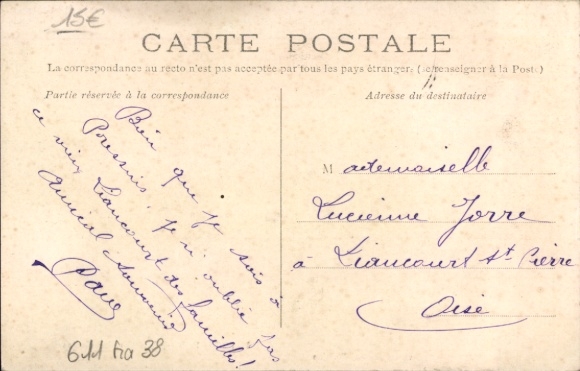 15€
CARTE POSTALE
La correspondance au recto n'est pas acceptée par tous les pays étrangers (se renseigner à la Poste)
Partie réservée à la correspondance
Bien que je sois à
Poussins, je n'oublie pas
ce vieux Liancourt des familles!
Amical Souvenir
611 fra 38
Adresse du destinataire
Mademoiselle
Lucienne Jorre
à Liancourt St Pierre
Oise